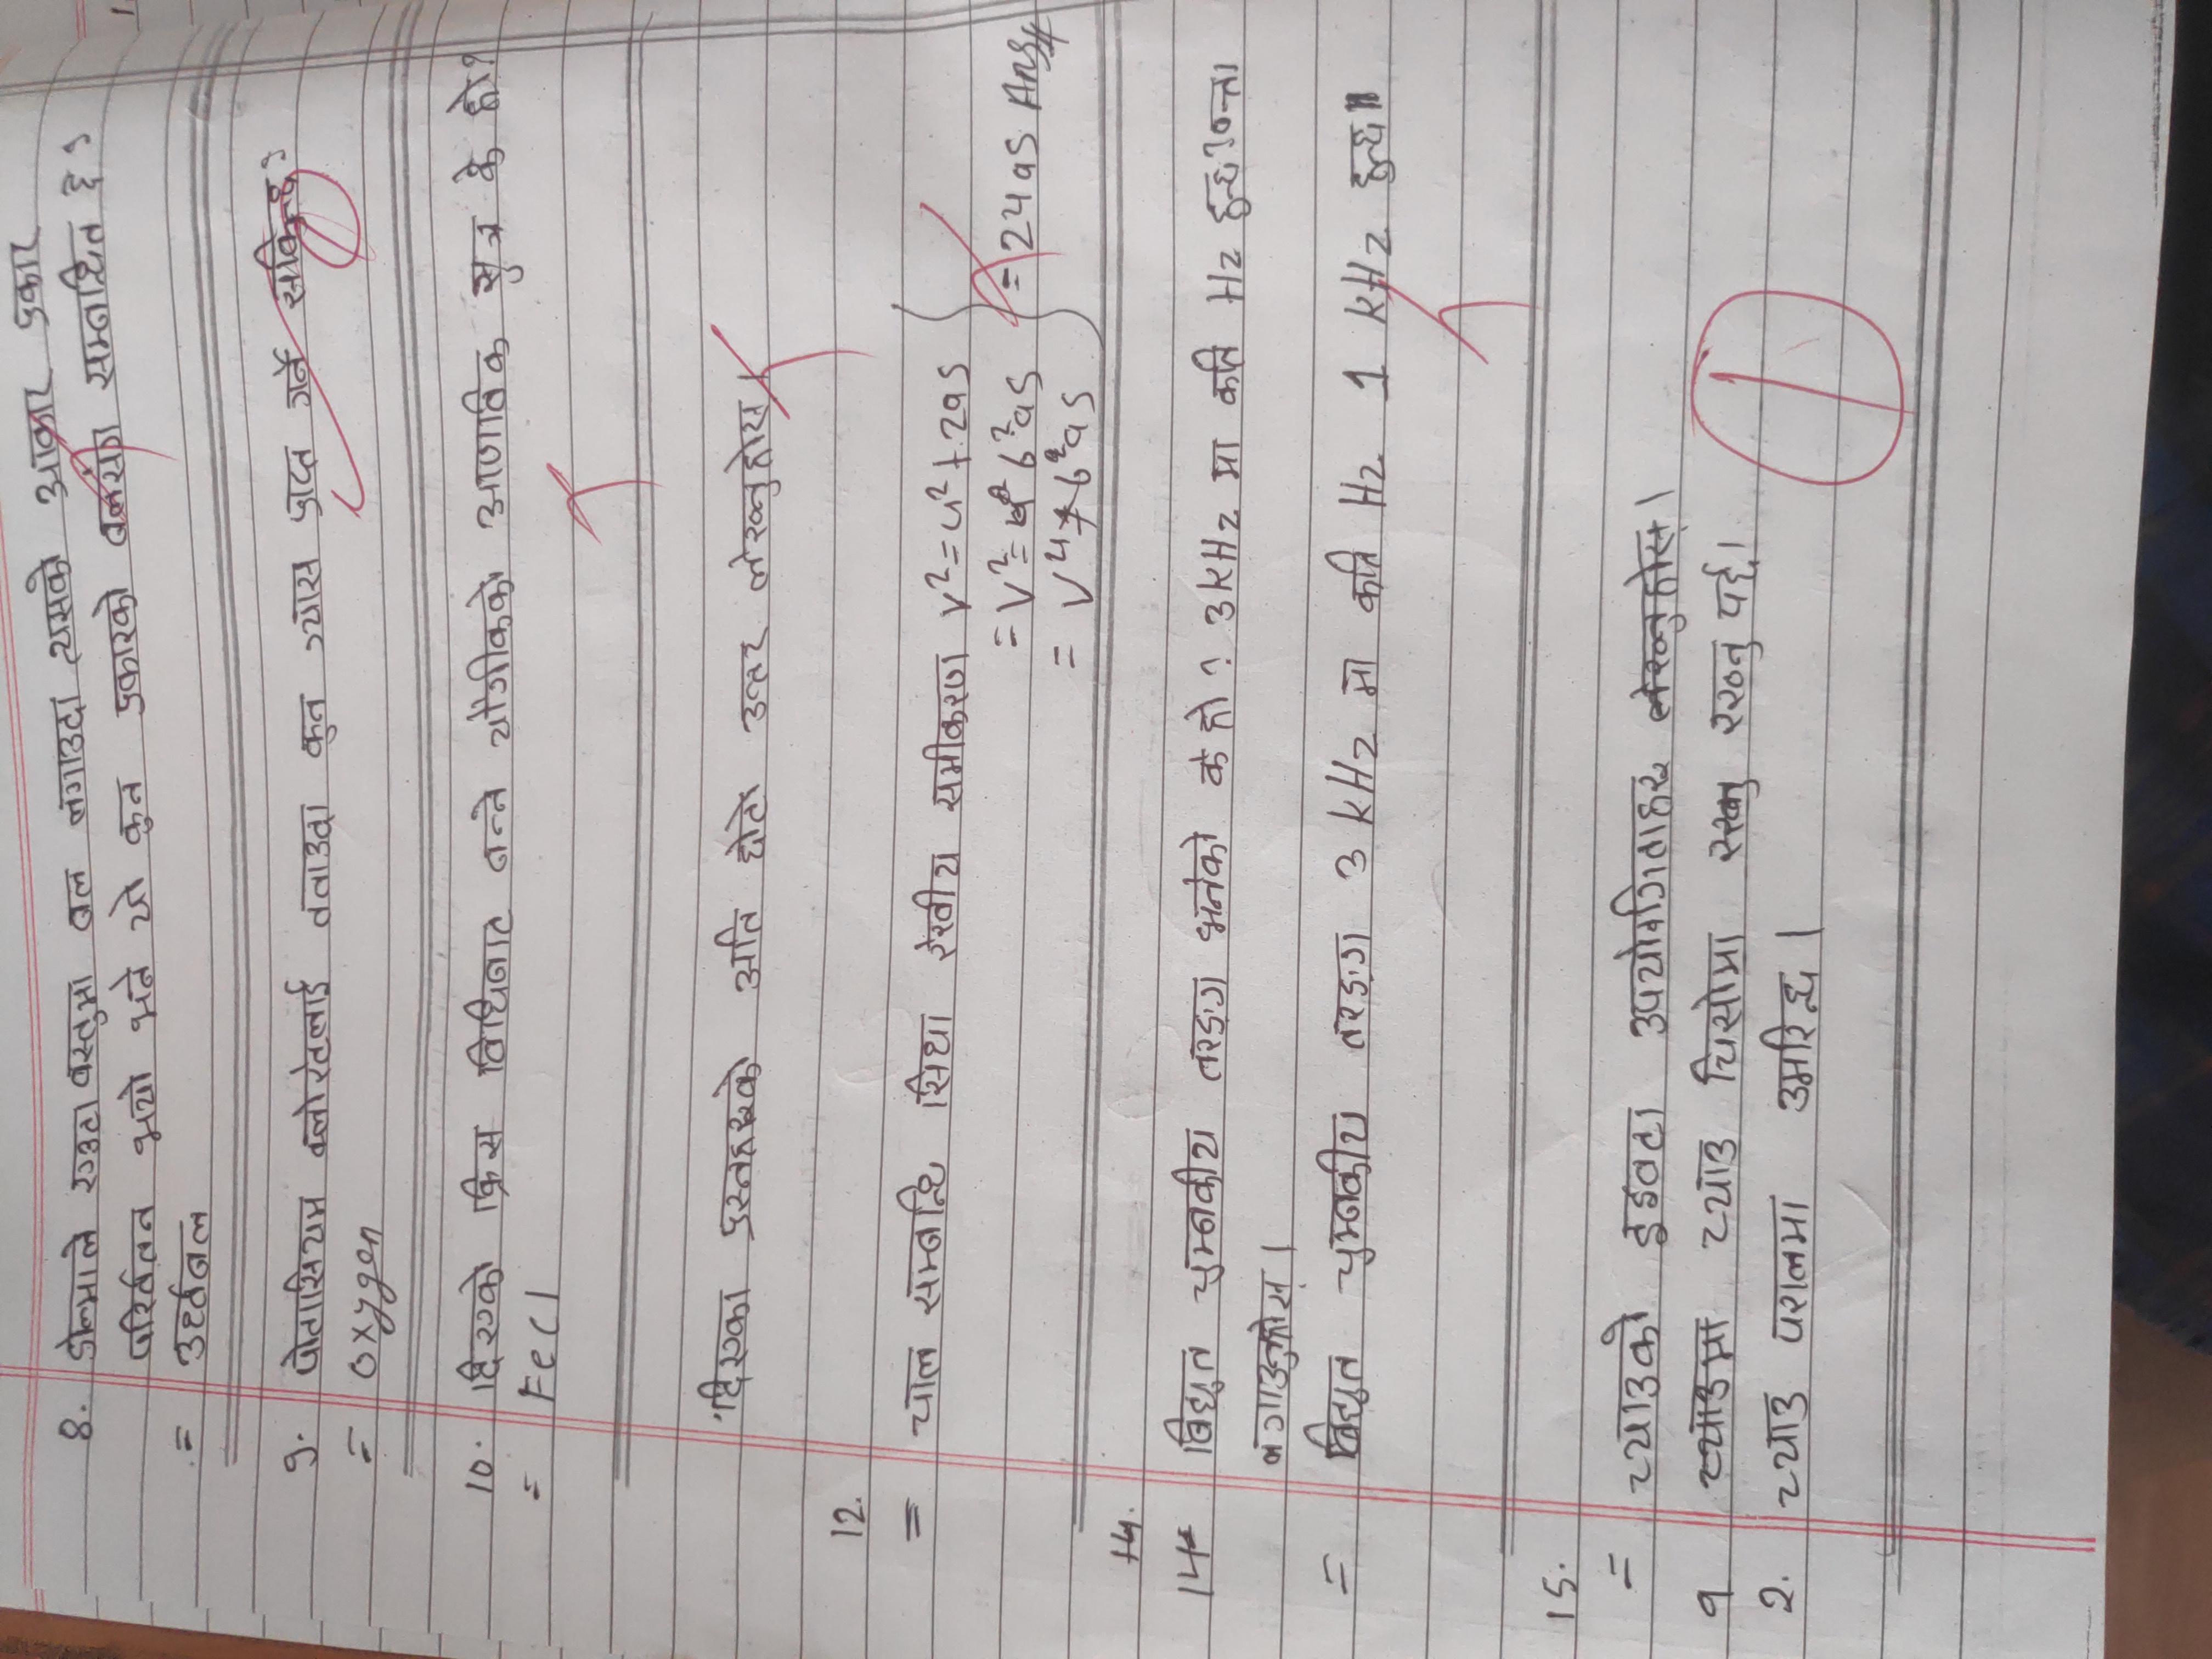 8. डोल्माले एउटा वस्तुमा बल लगाउदा त्यसको आकार प्रकार
परिर्वतन भयो भने यो कुन प्रकारको बलसंग सम्बन्धित छ?
=
9. पोतासियम क्लोरेटलाई तताउदा कुन ग्यास प्राप्त गर्न सकिन्छ?
= Oxygen
10. दिएको क्रिस विधिबाट बन्ने यौगीकको आणाविक सुत्र के हो?
= FeCl
दिएका प्रश्नहरूको अति छोटो उत्तर लेख्नुहोस।
12.
= चाल सम्बन्धि सिधा रेखीय समीकरण v²=u²+2as
= v²= 6²as = 24as Ans
= v⁴ 6²as
14.
14 विद्युत चुम्बकीय तरङ्ग भनेको के हो? 3kHz मा कति Hz हुन्छ? पत्ता
लगाउनुहोस्।
= विद्युत चुम्बकीय तरङ्ग 3 kHz मा कति Hz 1 kHz हुन्छ॥
15.
= च्याउको दुइवटा उपयोगिताहरू लेख्नुहोस्।
१ च्याउमा च्याउ चिसोमा राख्नु पर्छ।
२. च्याउ परालमा उमरिन्छ।
1